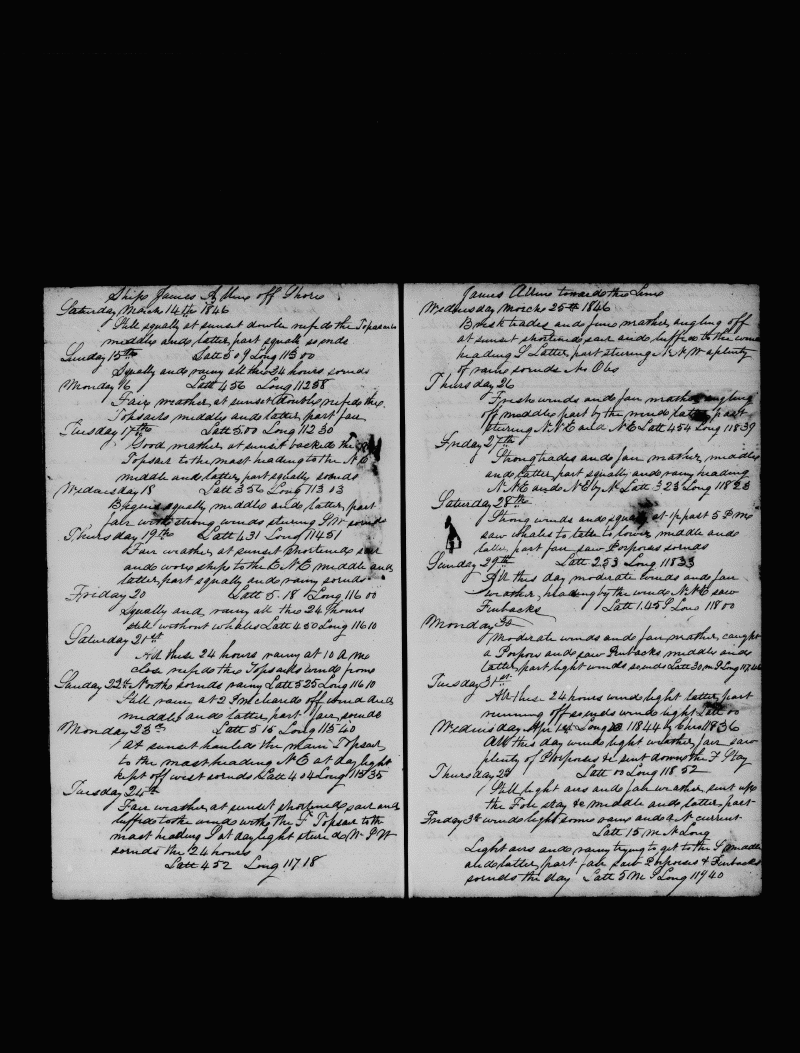 Ship James Allen off Shore
Saturday March 14th 1846
Still squally at sunset double reefd the Topsails
middle and latter part squally so ends
Sunday 15th Latt 5 09 Long 113 00
Squally and rainy all the 24 hours so ends
Monday 16 Latt 4 56 Long 112 58
Fair weather at sunset double reefd the
Topsails middle and latter part fair
Tuesday 17th Latt 5 00 Long 112 30
Good weather at sunset backed the
Topsail to the mast heading to the N E
middle and latter part squally so ends
Wednesday 18 Latt 3 56 Long 113 03
Begins squally middle and latter part
fair with strong winds stering S W so ends
Thursday 19th Latt 4 31 Long 114 51
Fair weather at sunset shortend sail
and wore ship to the E N E middle and
latter part squally and rainy so ends
Friday 20 Latt 5.18 Long 116 00
Squally and rainy all the 24 hours
still without whales Latt 4 50 Long 116 10
Saturday 21st
All these 24 hours rainy at 10 A m
close reefd the Topsails wind from
Sunday 22th North so ends rainy Latt 5 25 Long 116 10
Still rainy at 2 P m cleard off wind and
middle and latter part fair so ends
Monday 23th Latt 5 15 Long 115 40
At sunset hauled the main Topsail
to the mast heading N E at day light
kept off west so ends Latt 4 04 Long 115 35
Tuesday 24th
Fair weather at sunset shortened sail and
luffed to the wind with the F Topsail to the
mast heading S at day light sterd W S W
so ends the 24 hours
Latt 4 52 Long 117 18
James Allen towards the Line
Wednesday March 25th 1846
Brisk trades and fine weather angling off
at sunset shortened sail and luffed to the wind
heading S Latter part stering N N W a plenty
of rain so ends No Obs
Thursday 26
Fresh winds and fair weather angling
off middle part by the wind latter part
stering N N E and N E Latt 4 54 Long 118 39
Friday 27th
Strong trades and fair weather middle
and latter part squally and rainy heading
N N E and N E by N Latt 3 23 Long 118 23
Saturday 28th
Strong winds and squally at ½ past 5 P m
saw whales to talk to lower middle and
latter part fair saw Porposes so ends
Sunday 29th Latt 2 53 Long 118 33
All this day moderate winds and fair
weather heading by the wind N N E saw
Finbacks Latt 1.45 S Long 118 00
Monday 30
Moderate winds and fair weather caught
a Porpose and saw Finbacks middle and
latter part light winds so ends Latt 30 m S Long 117
Tuesday 31st
All these 24 hours wind light latter part
running off so ends wind light Latt 00
Wednesday Apr 1st Long 118 44 by Chro 118 36
All this day wind light weather fair saw
plenty of Porposes &c sent down the F Stay
Thursday 2d Latt 00 Long 118 52
Still light airs and fair weather sent up
the Fore stay &c middle and latter part
Friday 3d wind light some rain and a N current
Latt 15 m N Long
Light airs and rainy trying to get to the S middle
and latter part fair saw Porposes & Finbacks
so ends the day Latt 5 m S Long 119 40